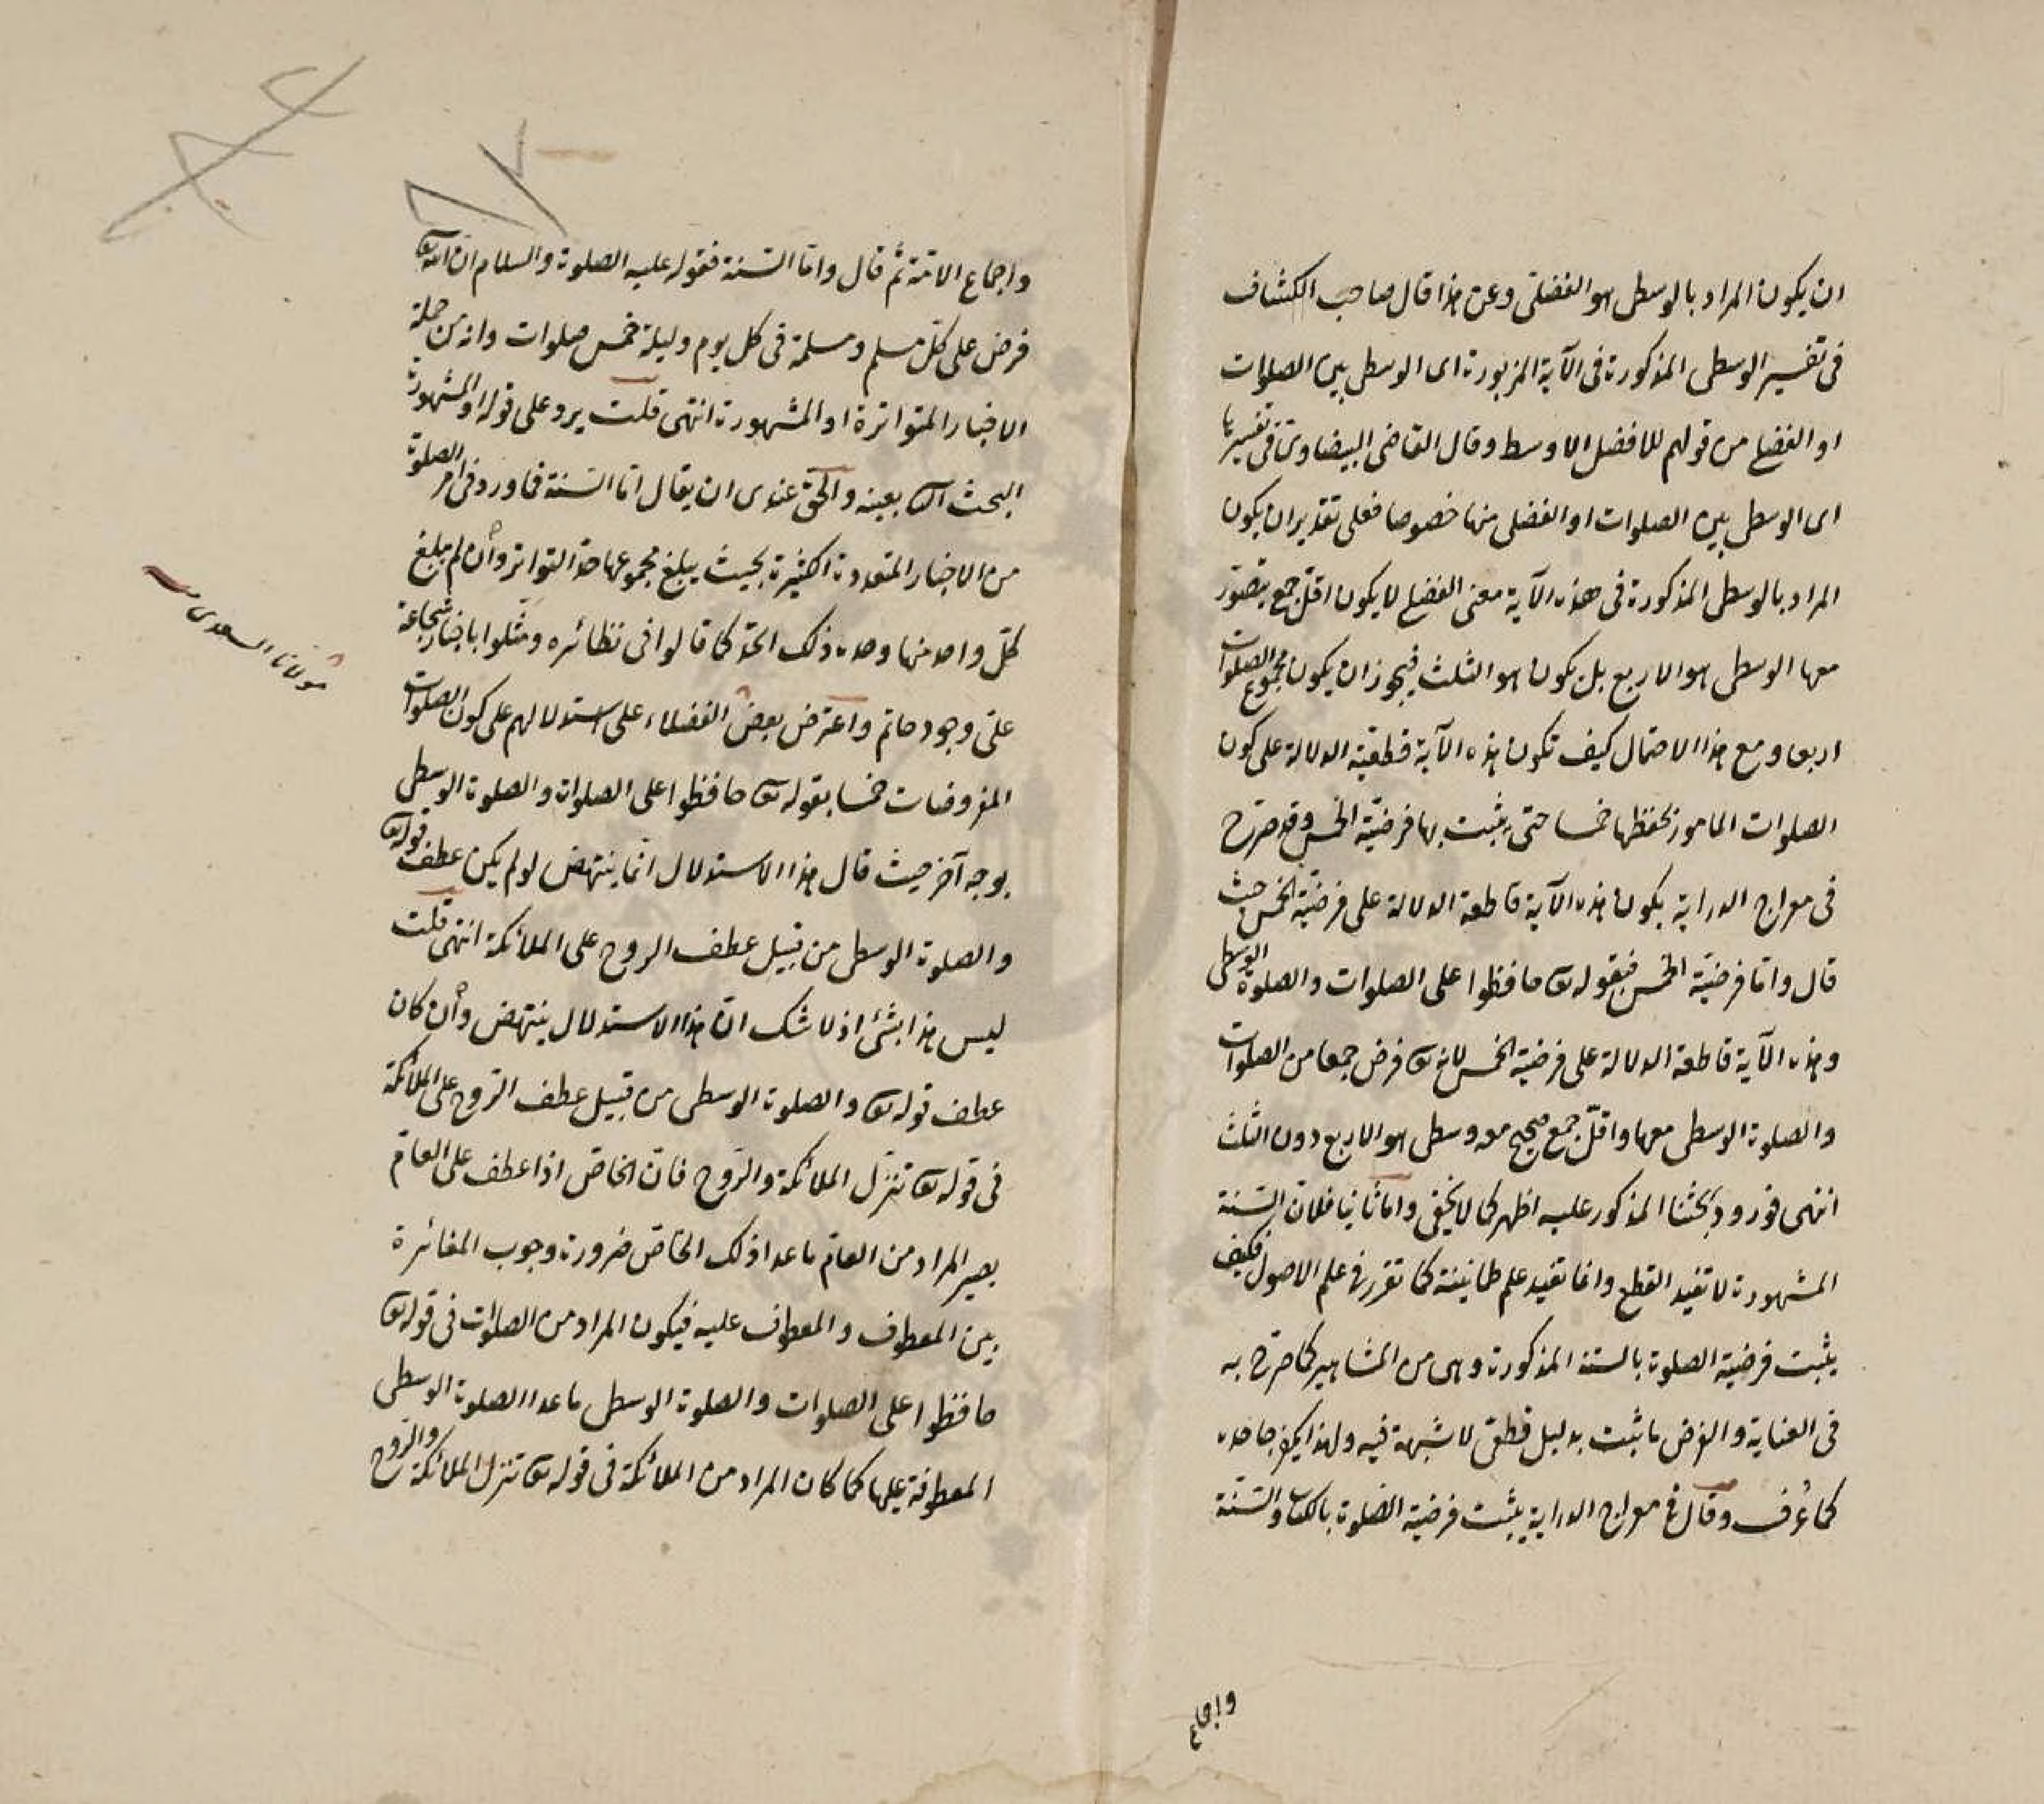 ان يكون المراد بالوسطى هو الفضلى وعن هذا قال صاحب الكشاف
فى تفسير الوسطى المذكورة فى الآية المزبورة اى الوسطى بين الصلوات
او الفضلى من قولهم للافضل الاوسط وقال القاضى البيضاوى فى تفسيرها
اى الوسطى بين الصلوات او الفضلى منها خصوصا فعلى تقدير ان يكون
المراد بالوسطى المذكورة فى هذه الآية معنى الفضلى لا يكون اقل جمع يتصور
معها الوسطى هو الاربع بل يكون هو الثلث فيجوز ان يكون مجموع الصلوات
اربعا ومع هذا الاحتمال كيف تكون هذه الآية قطعية الدلالة على كون
الصلوات المامور بحفظها خمسا حتى يثبت بها فرضية الخمس وقد صرح
فى معراج الدراية بكون هذه الآية قاطعة الدلالة على فرضية الخمس حيث
قال واما فرضية الخمس فبقوله تع حافظوا على الصلوات والصلوة الوسطى
وهذه الآية قاطعة الدلالة على فرضية الخمس لانه تع فرض جمعا من الصلوات
والصلوة الوسطى معها واقل جمع صحيح معه وسطى هو الاربع دون الثلث
انتهى فورود بحثنا المذكور عليه اظهر كما لا يخفى واما ثانيا فلان السنة
المشهورة لا تفيد القطع وانما تفيد علم طمانينة كما تقرر فى علم الاصول فكيف
يثبت فرضية الصلوة بالسنة المذكورة وهى من المشاهير كما صرح به
فى العناية والفرض ما ثبت بدليل قطعى لا شبهة فيه ولهذا يكفر جاحده
كما عُرف وقال فى معراج الدراية يثبت فرضية الصلوة بالكتاب والسنة
واجماع
واجماع الامة ثم قال واما السنة فقوله عليه الصلوة والسلام ان الله تع
فرض على كل مسلم ومسلمة فى كل يوم وليلة خمس صلوات وانه من جملة
الاخبار المتواترة او المشهورة انتهى قلت يرد على قوله او المشهورة
البحث الآ بعينه والحق عندى ان يقال اما السنة فما ورد فى امر الصلوة
من الاخبار المتعددة الكثيرة بحيث يبلغ مجموعها حد التواتر وأن لم يبلغ
كل واحد منها وحده ذلك الحد كما قالوا فى نظائره ومثلوا باخبار شجاعة
على وجود حاتم واعترض بعض الفضلاء على استدلالهم على كون الصلوات
المفروضات خمسا بقوله تع حافظوا على الصلوات والصلوة الوسطى
بوجه آخر حيث قال هذا الاستدلال انما ينتهض لو لم يكن عطف قوله تع
والصلوة الوسطى من قبيل عطف الروح على الملائكة انتهى قلت
ليس هذا بشئ اذ لا شك ان هذا الاستدلال ينتهض وأن كان
عطف قوله تع والصلوة الوسطى من قبيل عطف الروح على الملائكة
فى قوله تع تنزل الملائكة والروح فان الخاص اذا عطف على العام
يصير المراد من العام ما عدا ذلك الخاص ضرورة وجوب المغائرة
بين المعطوف والمعطوف عليه فيكون المراد من الصلوات فى قوله تع
حافظوا على الصلوات والصلوة الوسطى ما عدا الصلوة الوسطى
المعطوفة عليها كما كان المراد من الملائكة فى قوله تع تنزل الملائكة والروح
مولانا السعدى